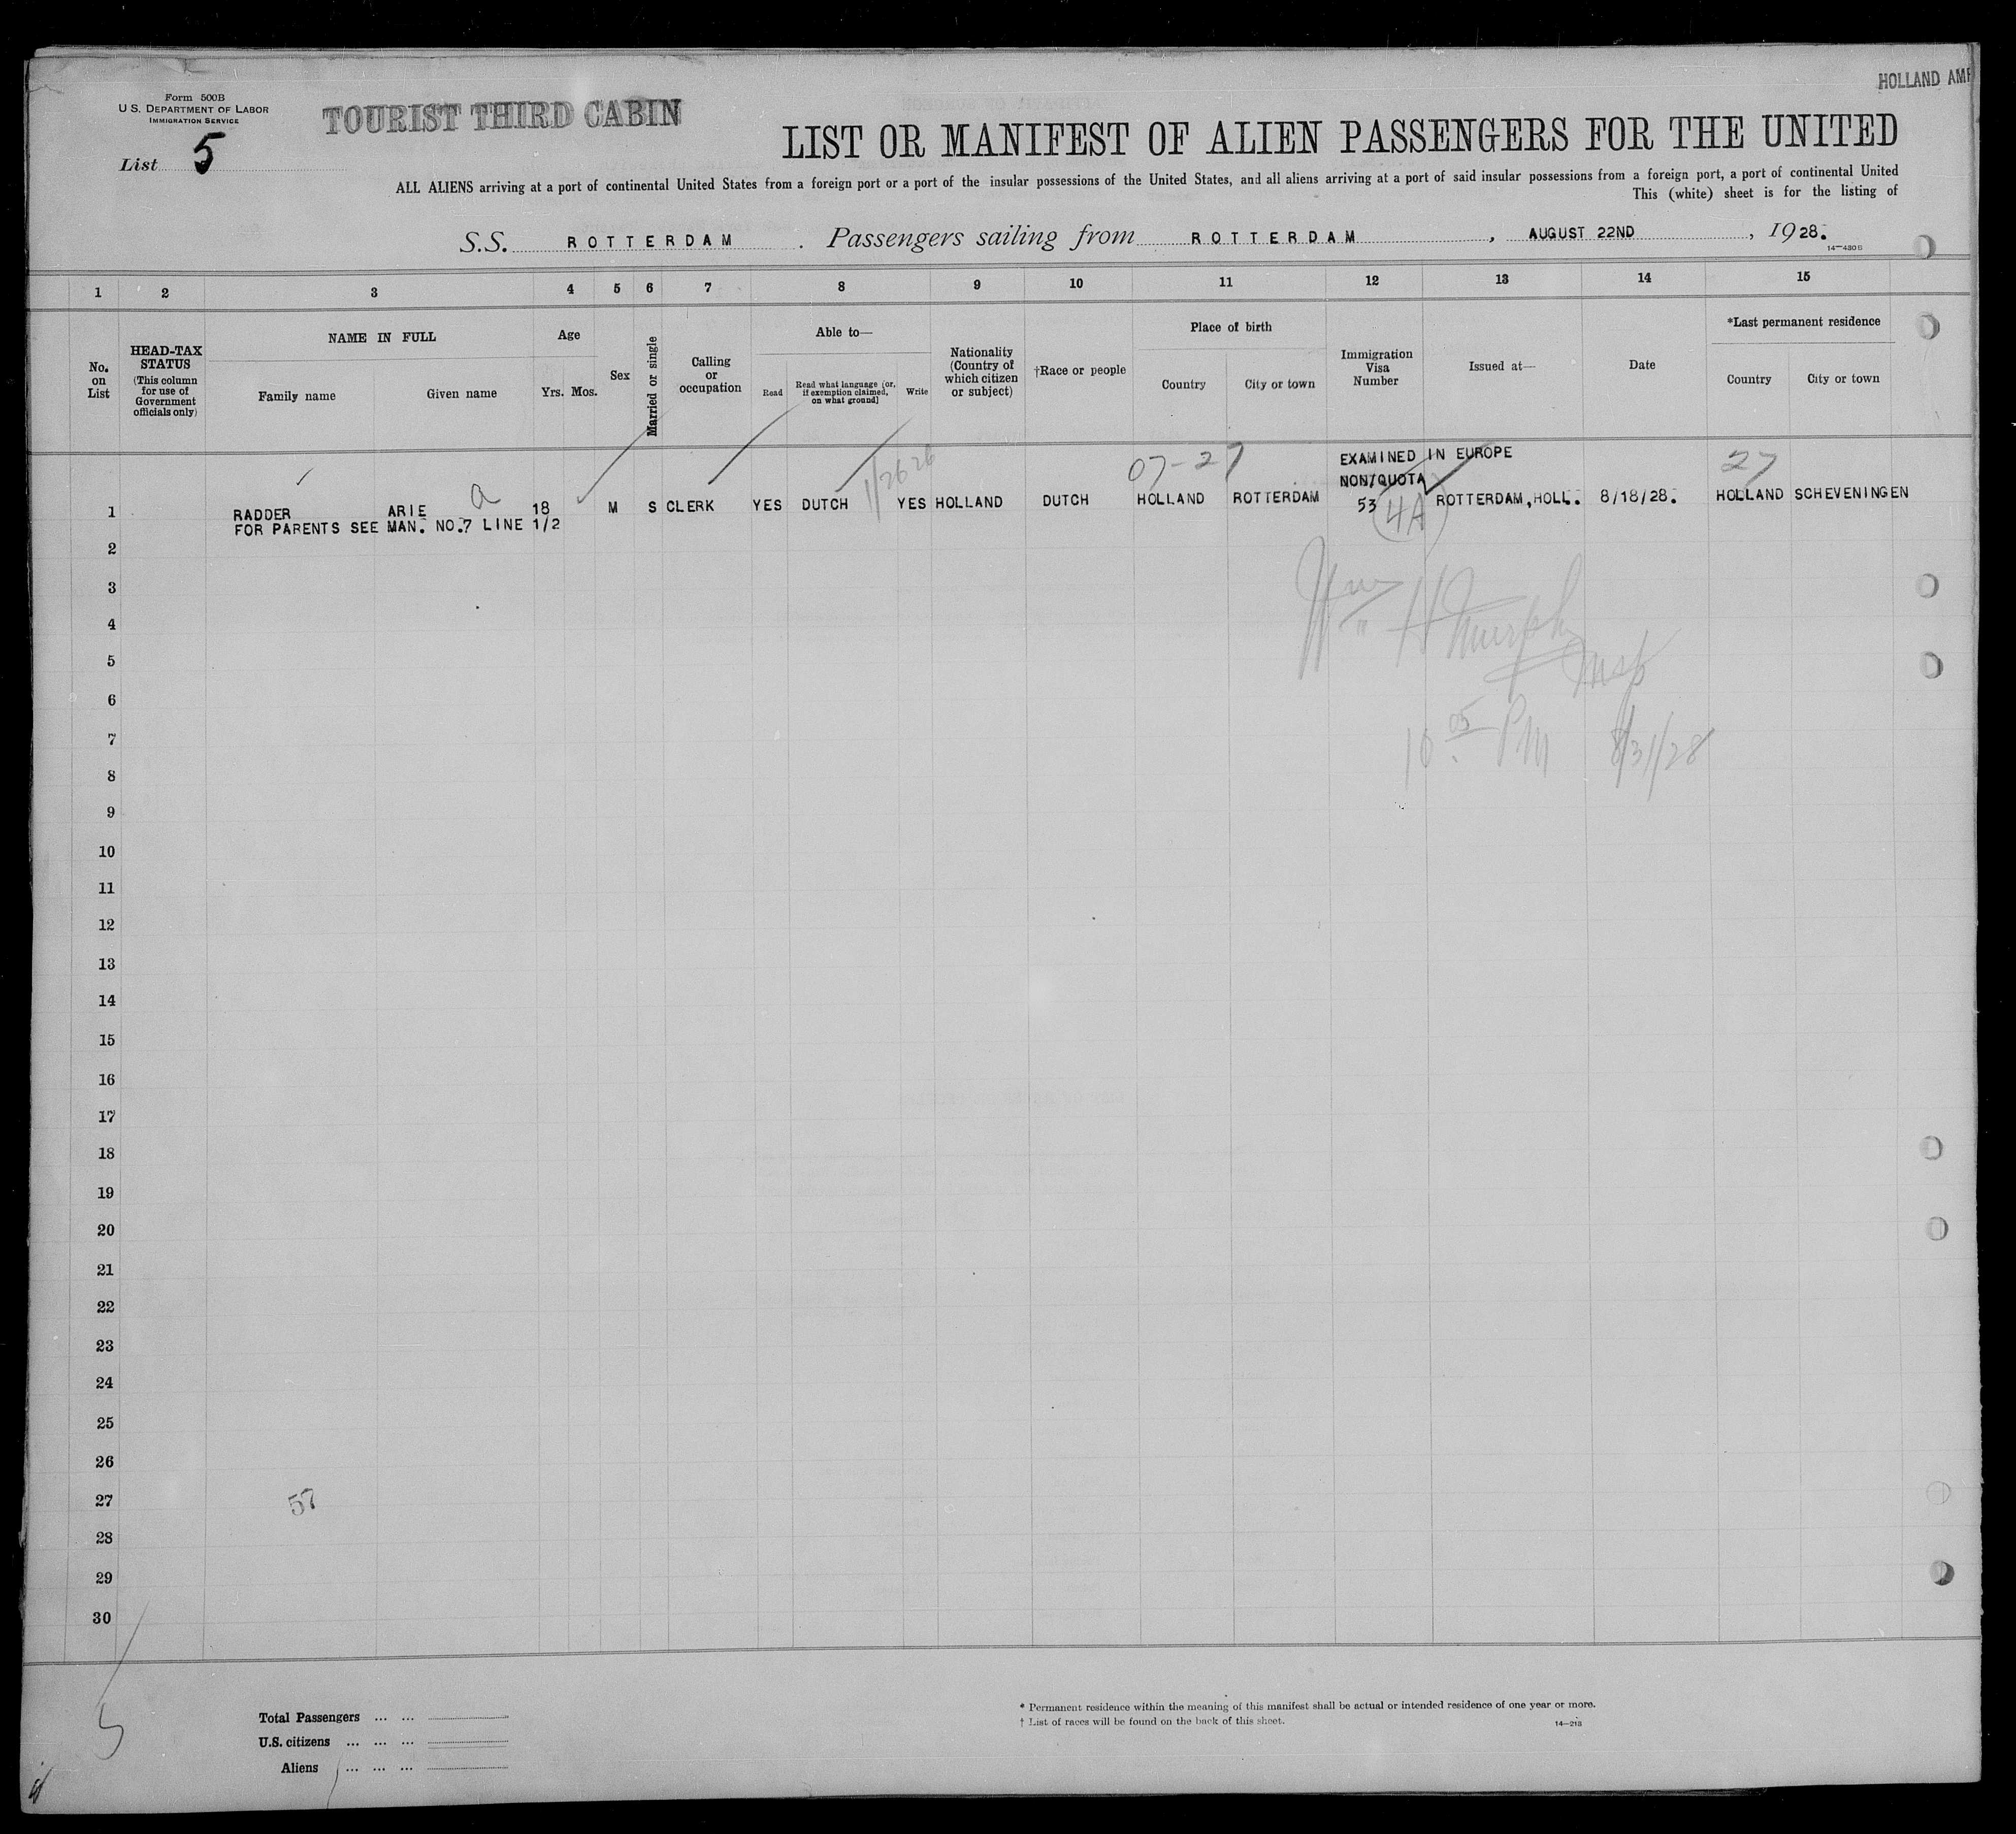 HOLLAND AME
Form 500B
U.S. DEPARTMENT OF LABOR
IMMIGRATION SERVICE
TOURIST THIRD CABIN
List 5
LIST OR MANIFEST OF ALIEN PASSENGERS FOR THE UNITED
ALL ALIENS arriving at a port of continental United States from a foreign port or a port of the insular possessions of the United States, and all aliens arriving at a port of said insular possessions from a foreign port, a port of continental United
This (white) sheet is for the listing of
S.S. ROTTERDAM . Passengers sailing from ROTTERDAM , AUGUST 22ND , 1928.
14—430 B
1 2 3 4 5 6 7 8 9 10 11 12 13 14 15
No. on List
HEAD-TAX STATUS (This column for use of Government officials only)
NAME IN FULL
Family name Given name
Age
Yrs. Mos.
Sex
Married or single
Calling or occupation
Able to—
Read Read what language [or, if exemption claimed, on what ground] Write
Nationality (Country of which citizen or subject)
†Race or people
Place of birth
Country City or town
Immigration Visa Number
Issued at—
Date
*Last permanent residence
Country City or town
07-27 27
EXAMINED IN EUROPE
NON/QUOTA
1/26 26
1 RADDER ARIE a 18 M S CLERK YES DUTCH YES HOLLAND DUTCH HOLLAND ROTTERDAM 53 (4A) ROTTERDAM,HOLL. 8/18/28. HOLLAND SCHEVENINGEN
FOR PARENTS SEE MAN. NO.7 LINE 1/2
2
3
Wm H Murphy
4
5
Insp
6
7
10 05 PM 8/31/28
8
9
10
11
12
13
14
15
16
17
18
19
20
21
22
23
24
25
26
27
57
28
29
30
5
Total Passengers ... ...
U.S. citizens ... ... ...
Aliens ... ... ...
* Permanent residence within the meaning of this manifest shall be actual or intended residence of one year or more.
† List of races will be found on the back of this sheet.
14—213